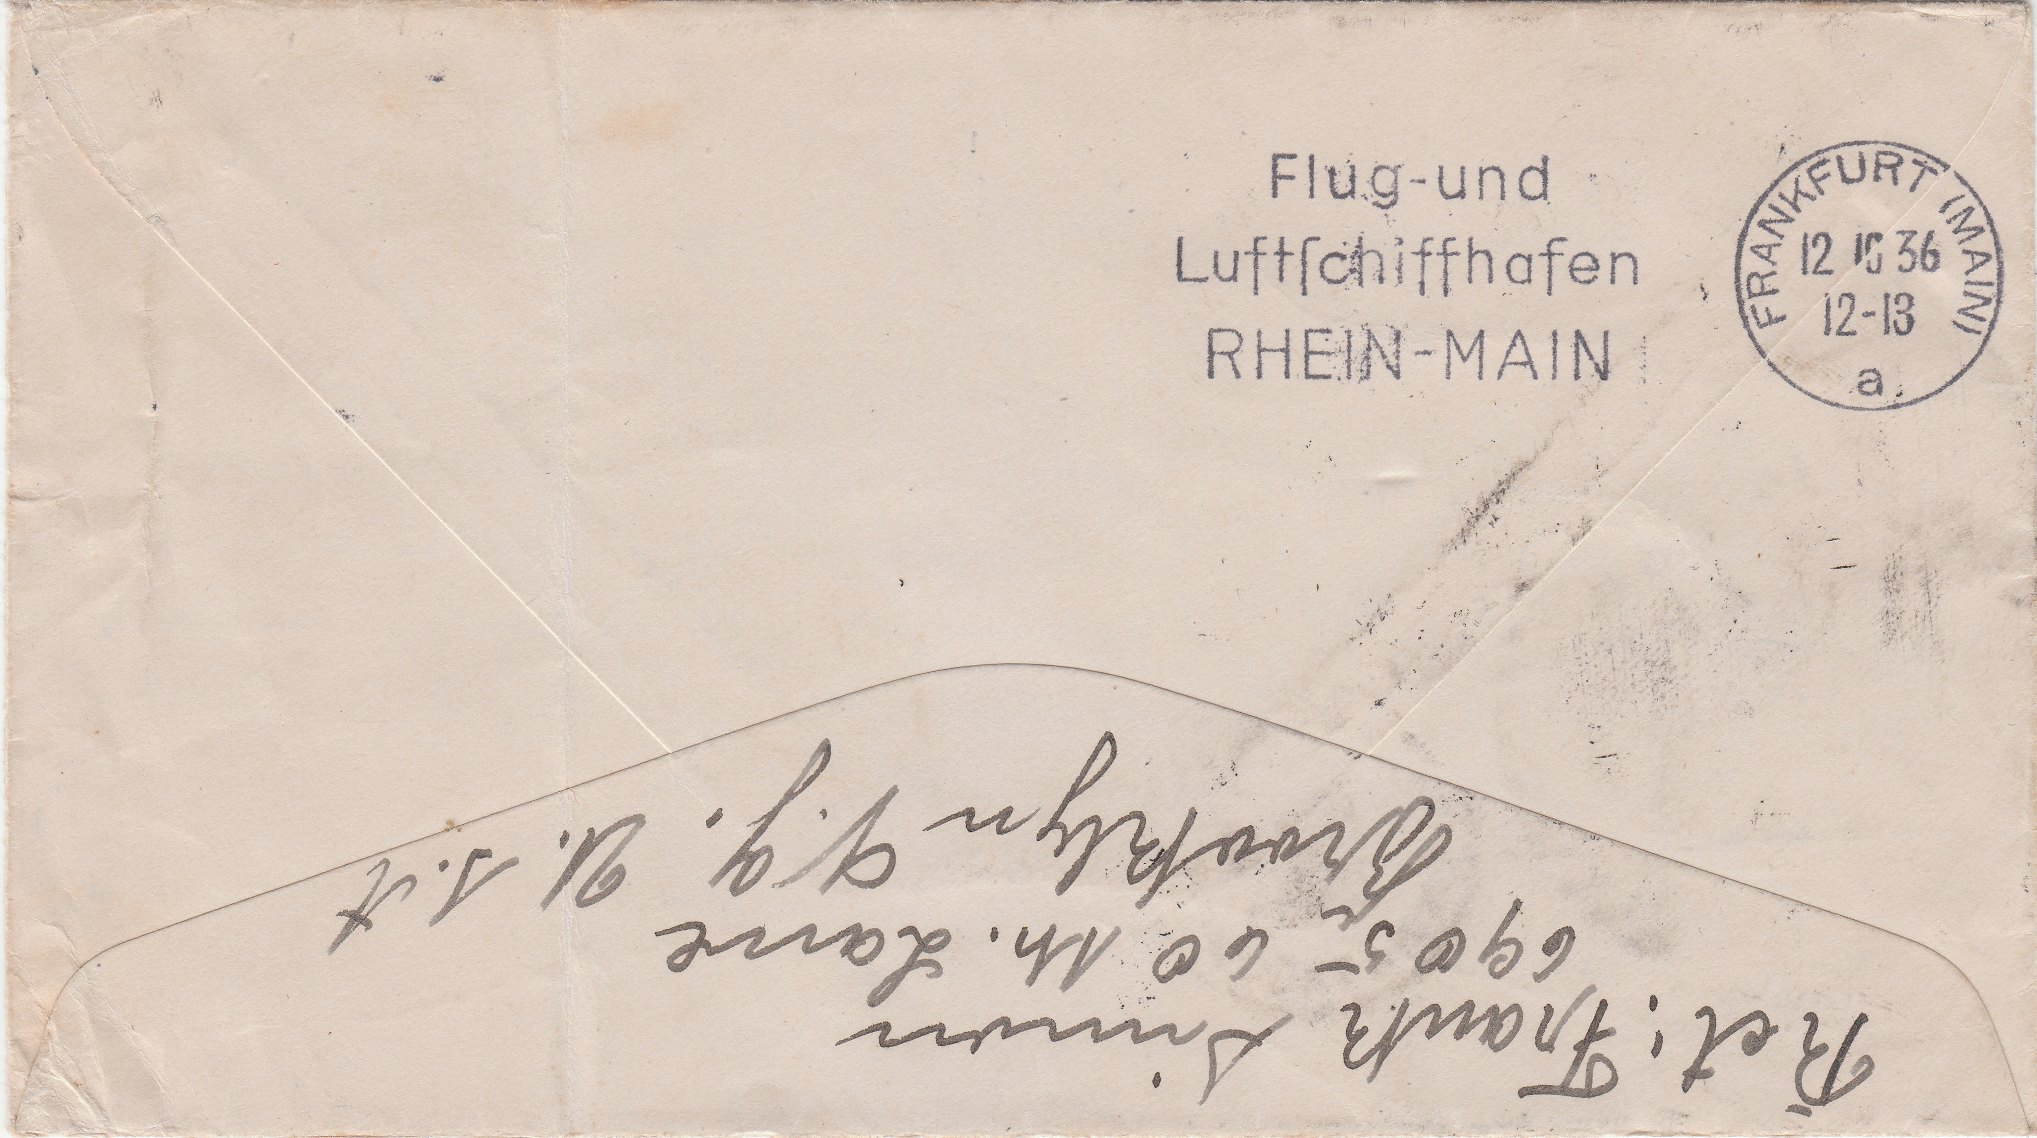 Flug-und
Luftſchiffhafen
RHEIN-MAIN
FRANKFURT (MAIN)
12 10 36
12-13
a
Ret: Frank Simon
6905 60 th. Lane
Brooklyn N.Y. U.S.A